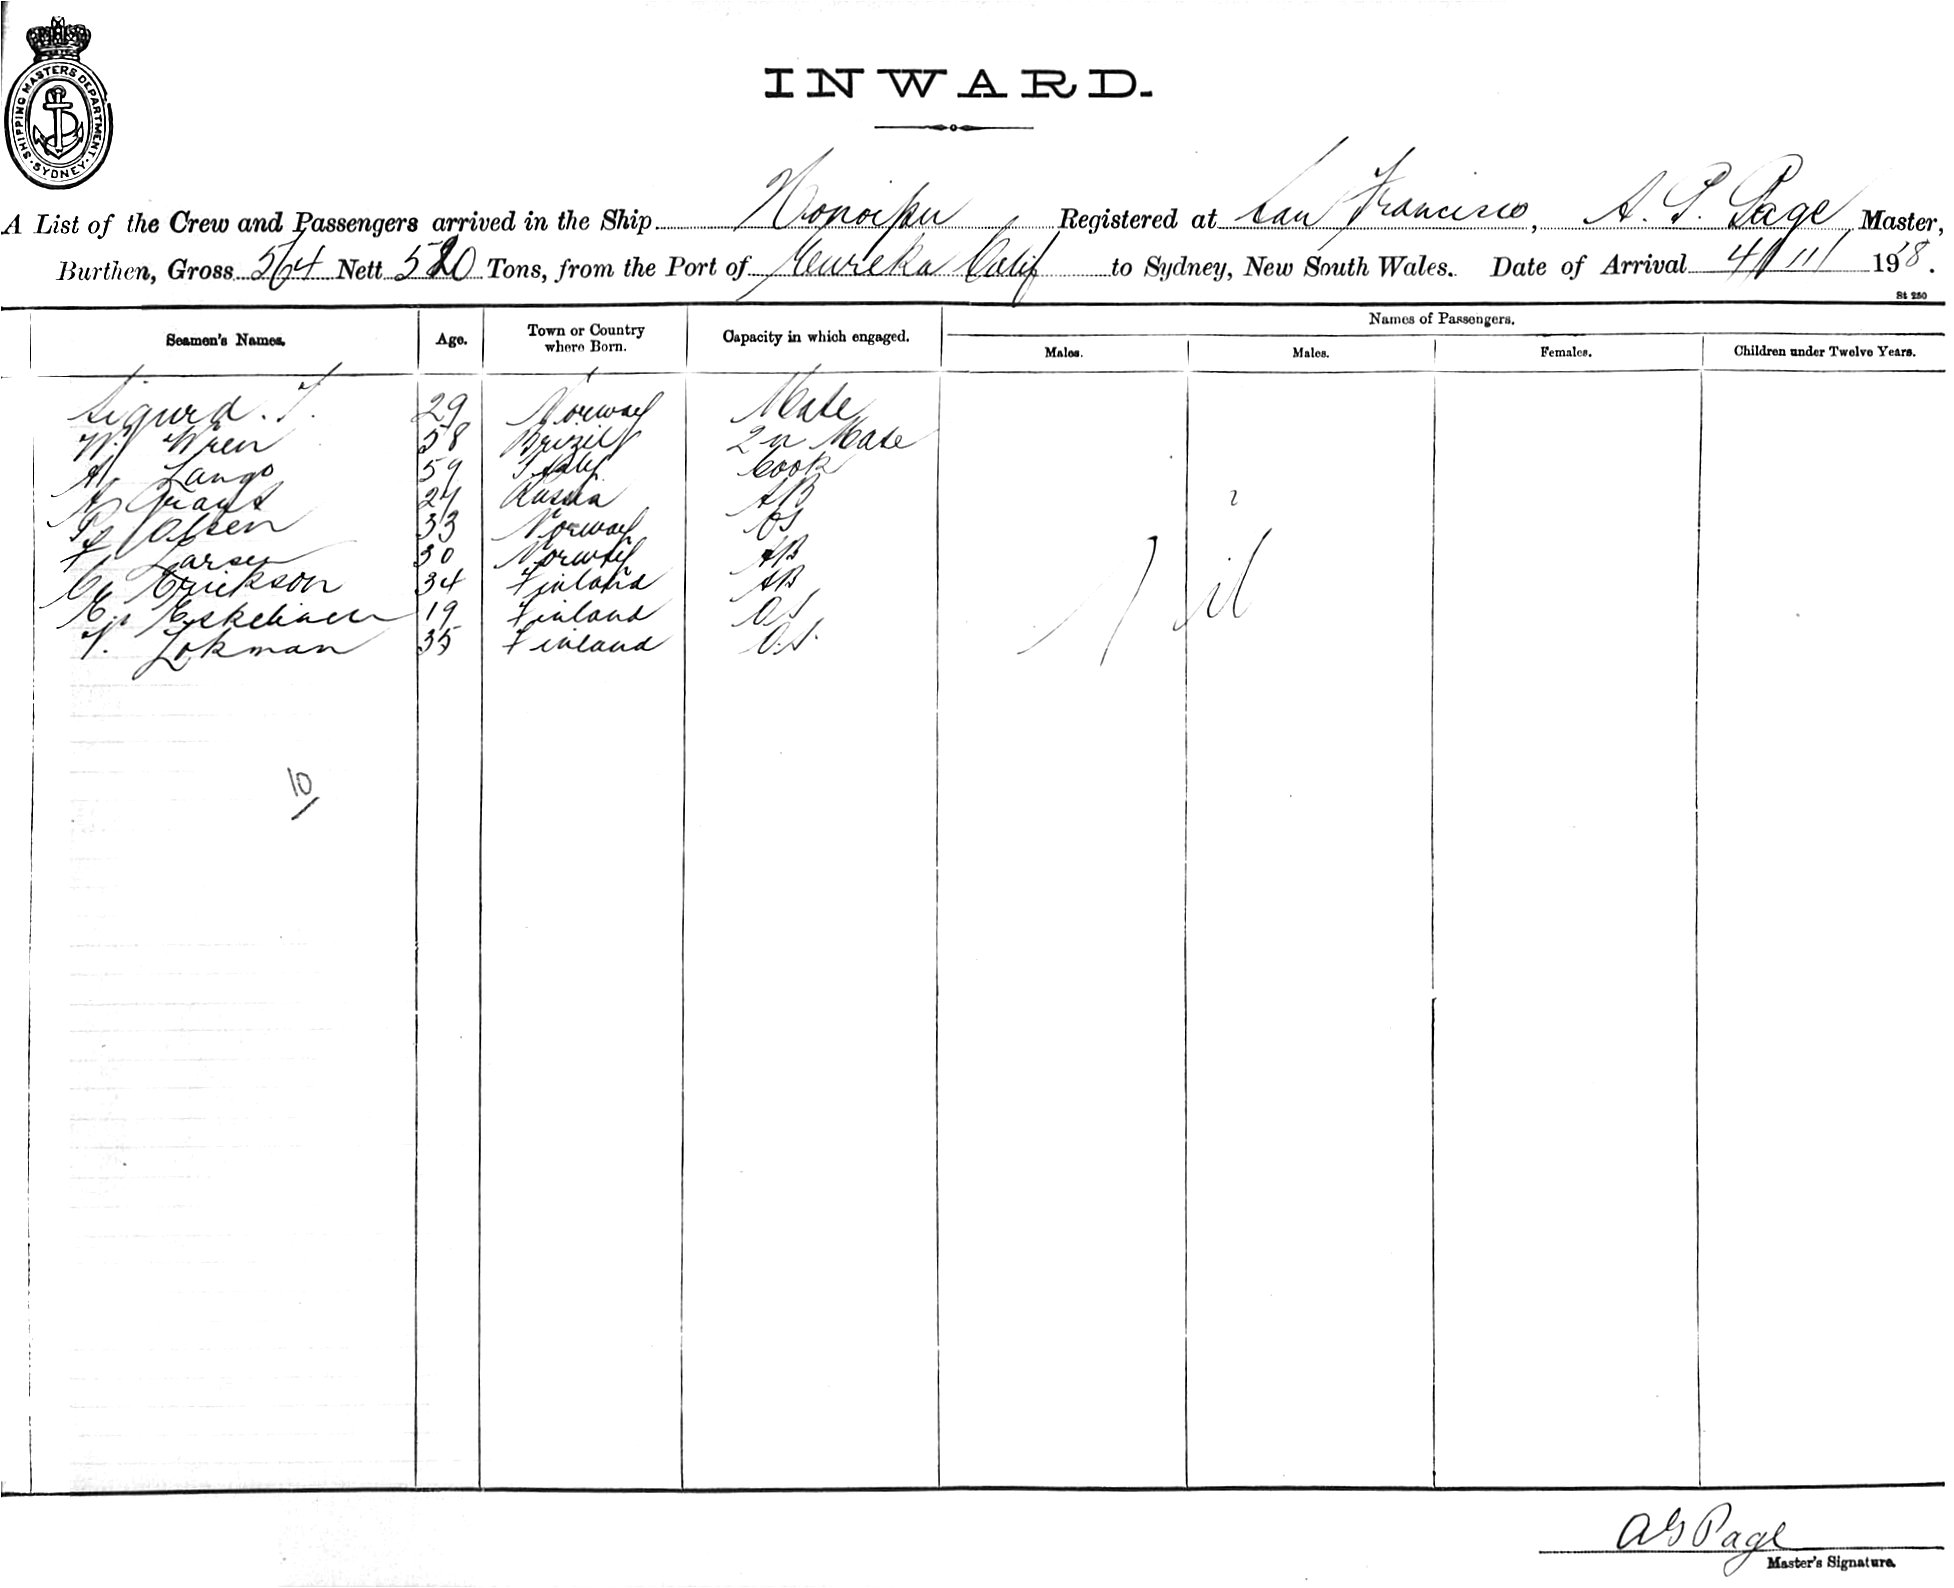 SHIPPING MASTERS DEPARTMENT
SYDNEY
INWARD.
A List of the Crew and Passengers arrived in the Ship Honoipu Registered at San Francisco, A. G. Page Master,
Burthen, Gross 564 Nett 520 Tons, from the Port of Eureka Calif to Sydney, New South Wales. Date of Arrival 4/11/ 1918.
St 250
Seamen's Names. Age. Town or Country where Born. Capacity in which engaged. Names of Passengers.
Males. Males. Females. Children under Twelve Years.
Sigurd. T. 29 Norway Mate
W. Wren 58 Brizil 2n Mate
A. Lango 59 Italy Cook
A Grant 24 Russia AB
Olsen 33 Norway OS
F. Larsen 30 Norway AB
C. Erickson 34 Finland AB
E. Eskelinen 19 Finland O.S
V. Lokman 35 Finland O.S.
Nil
10
A G Page
Master's Signature.